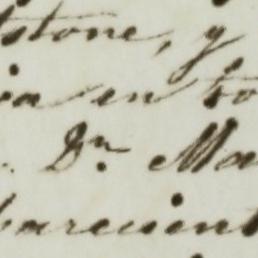 tstone, y
ia en to
Dn. Ma
parecient